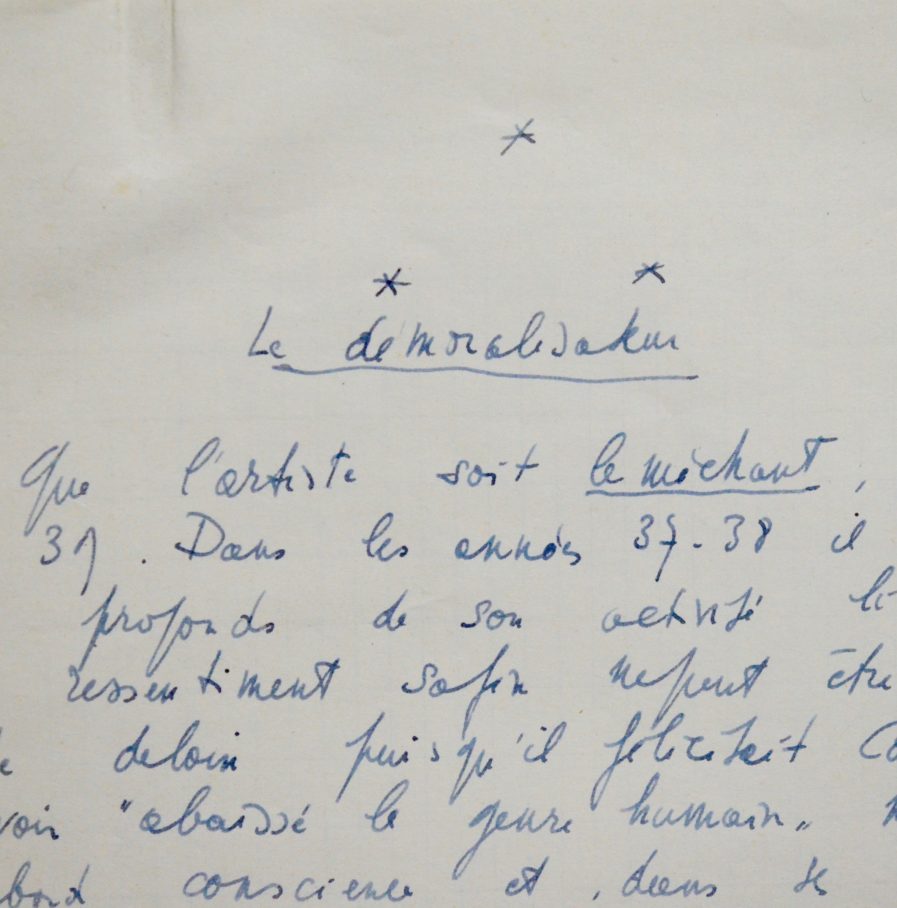 *
* *
Le démoralisateur
Que l'artiste soit le méchant,
39. Dans les années 37-38 il
profonds de son activité li
ressentiment ne peut être
de loin puisqu'il félicitait Co
voir "abaissé le genre humain„
bord conscience et, dans